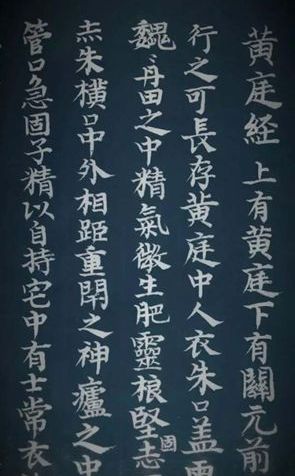 黄庭経 上有黄庭下有關元前
行之可長存黄庭中人衣朱口盖
巍々丹田之中精氣微生肥靈根堅固志
赤朱横口中外相距重閉之神廬之中
管口急固子精以自持宅中有士常衣